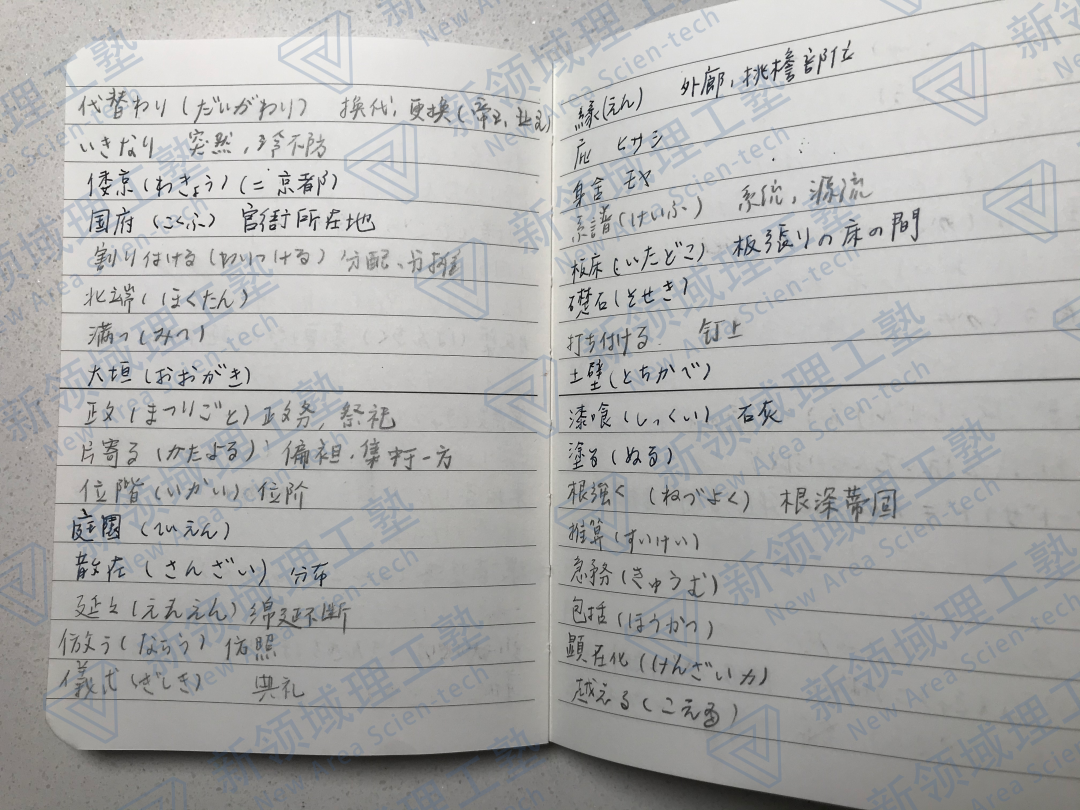 代替わり（だいがわり） 换代，更换（帝王，业主）
いきなり 突然，冷不防
倭京（わきょう）（= 京都）
国府（こくふ） 官衙所在地
割り付ける（わりつける） 分配、分摊
北端（ほくたん）
満つ（みつ）
大垣（おおがき）
政（まつりごと）政务，祭祀
片寄る（かたよる） 偏袒．集于一方
位階（いかい）位阶
庭園（ていえん）
散在（さんざい） 分布
延々（ええんえん）绵延不断
倣う（ならう） 依照
儀式（ぎしき） 典礼
縁（えん） 外廊，挑檐部位
庇 ヒサシ
身舎 モヤ
系譜（けいふ） 系统，源流
板床（いたどこ） 板張りの床の間
礎石（そせき）
打ち付ける 钉上
土壁（とちかべ）
漆喰（しっくい） 石灰
塗る（ぬる）
根強く（ねづよく） 根深蒂固
推算（すいけい）
急務（きゅうむ）
包括（ほうかつ）
顕在化（けんざいカ）
越える（こえる）
新领域理工塾
New Area Scien-tech